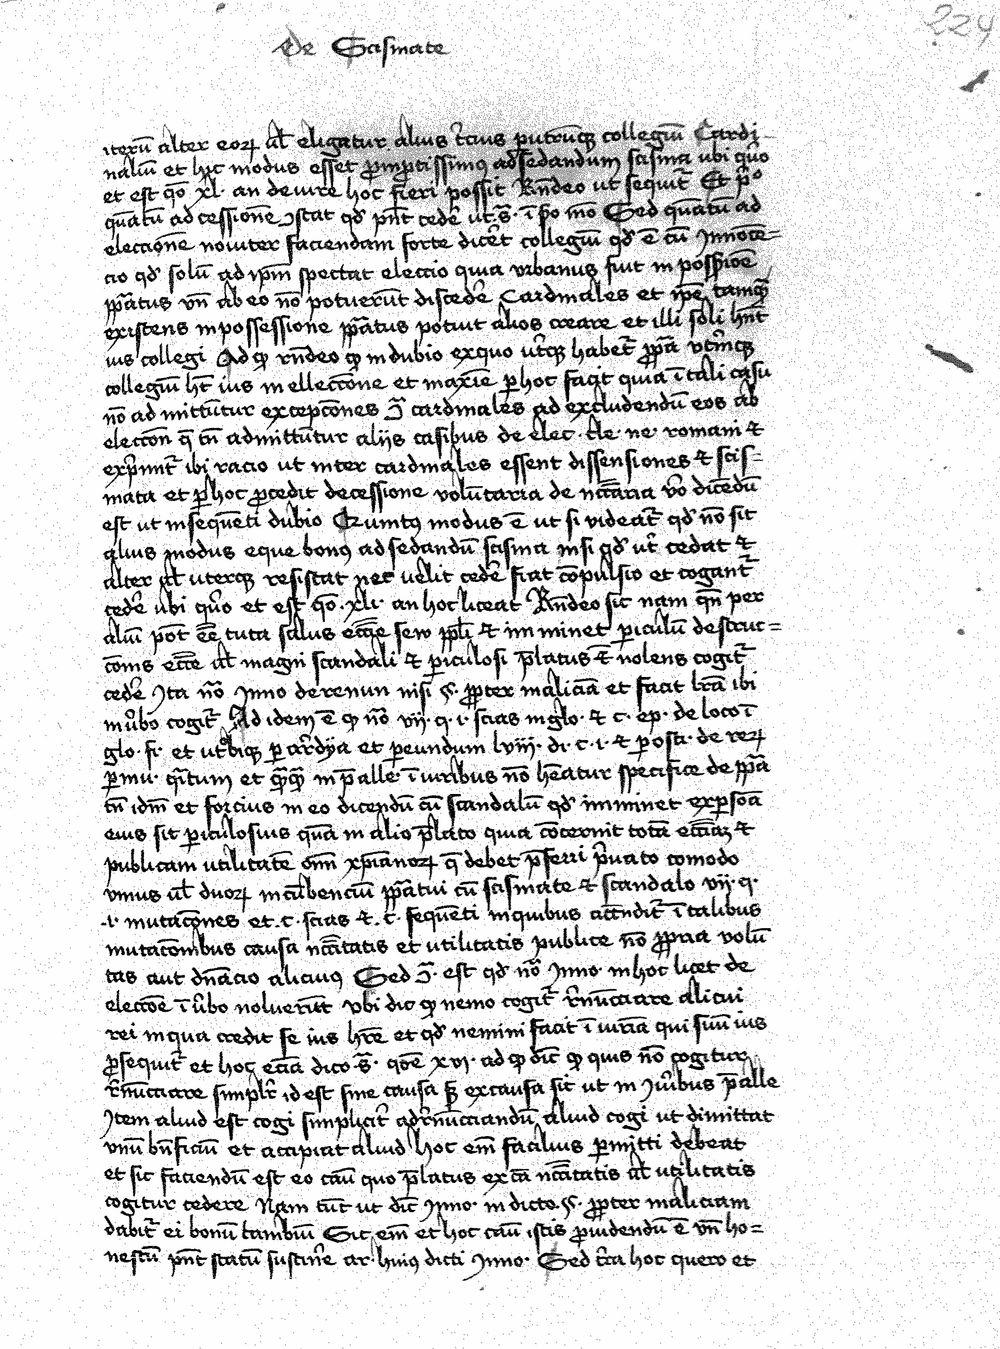 De Scismate
224
iterū alter eorꝝ ul̄ eligatur alius t̄cius p utrūqꝫ collegiū Cardi-
naliū et hic modus esset ꝓmptissimꝰ ad sedandum scisma ubi q̄ro
et est q̄o xl. an de iure hoc fieri possit Rn̄deo ut sequit̄ Et p̄º
quātū ad cessionē ꝯstat qd̄ pn̄t cedē ut s̄. ī p̄o mō Sed quātū ad
eleccionē noviter faciendam forte dicēt collegiū qd̄ ē cū Innocē=
cio qd̄ solū ad ip̄m spectat eleccio quia urbanus fuit in possessiōe
pp̄atus vn̄ ab eo nō potuerūt discedē Cardinales et ip̄e tamqꝫ
existens in possessione pp̄atus potuit alios creare et illi soli hn̄t
ius collegi Ad qꝫ rn̄deo qꝫ in dubio ex quo ut̄qꝫ habet̄ pp̄a ut̄mqꝫ
collegiū ht̄ ius in elleccōne et maxīe p hoc facit quia ī tali casu
nō admittūtur excepcōnes ꝯ̄ cardinales ad excludendū eos ab
eleccōn q̄ tn̄ admittūtur aliis casibus de elec. c̄le. ne romani ⁊
exp̄mit̄ ibi racio ut inter cardinales essent dissensiones ⁊ scis=
mata et p hoc ꝓcedit de cessione volūtaria de nccāria v̄o dicēdū
est ut in sequēti dubio Quintꝰ modus ē ut si videat̄ qd̄ nō sit
alius modus eque bonꝰ ad sedandū scisma nisi qd̄ ut̄ cedat ⁊
alter ul̄ uterqꝫ resistat nec velit cedē fiat cōpulsio et cogant̄
cedē ubi q̄ro et est q̄o .xli. an hoc liceat Rn̄deo sic nam qn̄ per
aliū pōt eē tuta salus eccīe seu ppl̄i ⁊ imminet piculū destruc=
cōnis ecc̄e ul̄ magni scandali ⁊ piculosi p̄latus ⁊ nolens cogit̄
cedē Ita nō Inno de renun nisi §. ꝓpter maliciā et facit lr̄a ibi
in v̄bo cogit̄ Ad idem ē qꝫ nō vij. q. i. scias in glo. ⁊ c. ep. de loco ī
glo. fi. et ut̄obiqꝫ p ar̄dyā et p eundum lviij. di. c. i. ⁊ p osti. de reꝝ
pmu. q̄situm et q̄mqꝫ in p̄alle. ī iuribus nō hēatur specifice de pp̄a
tn̄ idm̄ et forcius in eo dicendū cū scandalū qd̄ imminet ex psōa
eius sit piculosius quā in alio p̄lato quia cōcernit totā eccīaꝫ ⁊
publicam utilitatē om̄ xpīanorꝝ q̄ debet p̄ferri p̄vato comodo
unius ul̄ duorꝝ incūbenciū pp̄atui cū scismate ⁊ scandalo vij. q.
.i. mutacōnes et .c. scias ⁊ .c. sequēti in quibus attēdit̄ ī talibus
mutacōnibus causa nccītatis et utilitatis publice nō ꝓpria volū
tas aut dn̄acio alicuiꝰ Sed ꝯ̄. est qd̄ nō Inno. in hoc licet de
eleccōe ī v̄bo noluerūt vbi dic qꝫ nemo cogit̄ r̄nūciare alicui
rei in qua credit se ius hr̄e et qd̄ nemini facit ī iuriā qui suū ius
ꝓsequit̄ et hoc eciā dico s̄. q̄oē xvi. ad qꝫ dic̄ qꝫ quis nō cogitur
r̄nūciare simplr̄ id est sine causa sꝫ ex causa sic ut in Iuribus p̄alle
Item aliud est cogi simplicit̄ ad r̄nūciandū aliud cogi ut dimittat
unū bn̄ficiū et accipiat aliud hoc em̄ facilius pmitti debeat
et sic faciendū est eo casu quo p̄latus ex cā nccītatis ul̄ utilitatis
cogitur cedere Nam tūc ut dic̄ Inno. in dicto §. ꝓpter maliciam
dabit̄ ei bonū cambiū Sic em̄ et hoc casū istis ꝓuidendū ē vn̄ ho=
nestū pn̄t statū sustinē ar. huiꝰ dicti Inno. Sed c̄ra hoc quero et